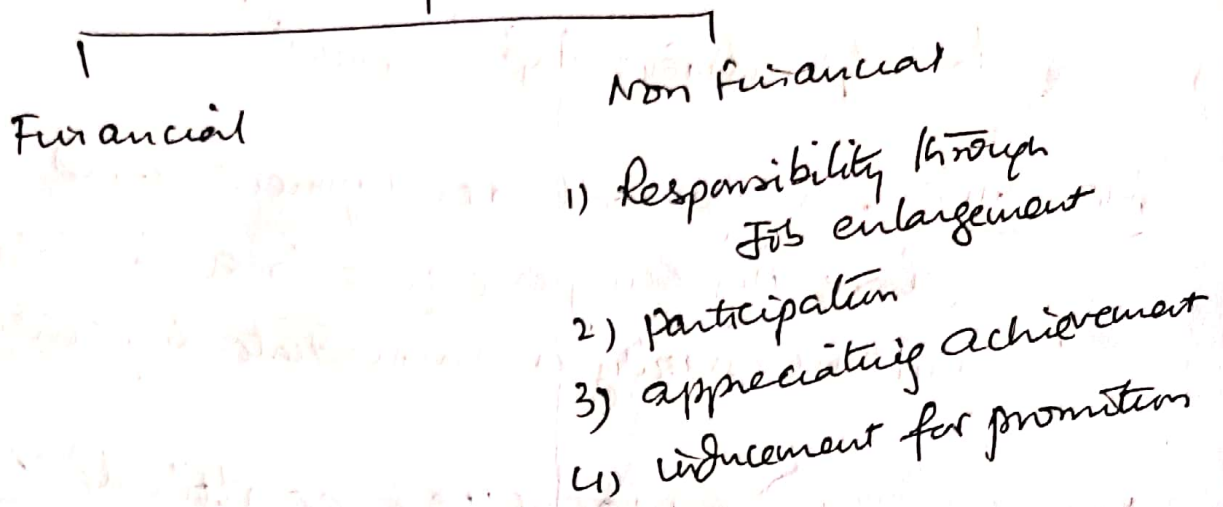 Financial
Non Financial
1) Responsibility through
Job enlargement
2) Participation
3) appreciating achievement
4) inducement for promotion